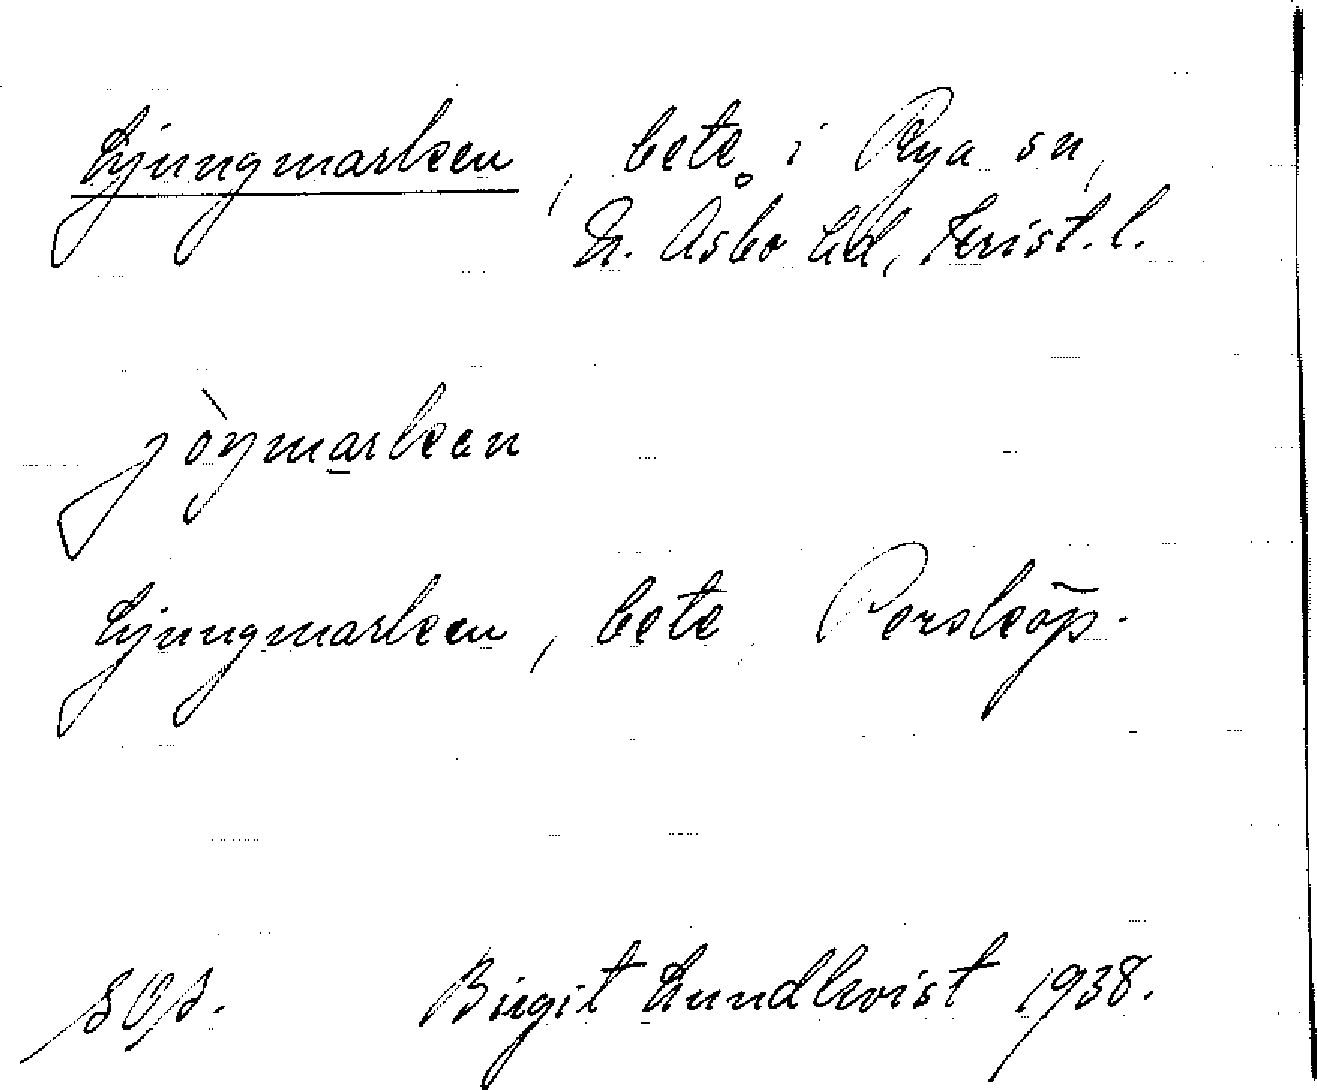 Ljungmarken, bete i Rya sn,
N. Åsbo hd, Krist. l.
jòŋma̲rkan
Ljungmarken, bete, Persköp.
Birgit Lundkvist 1938.